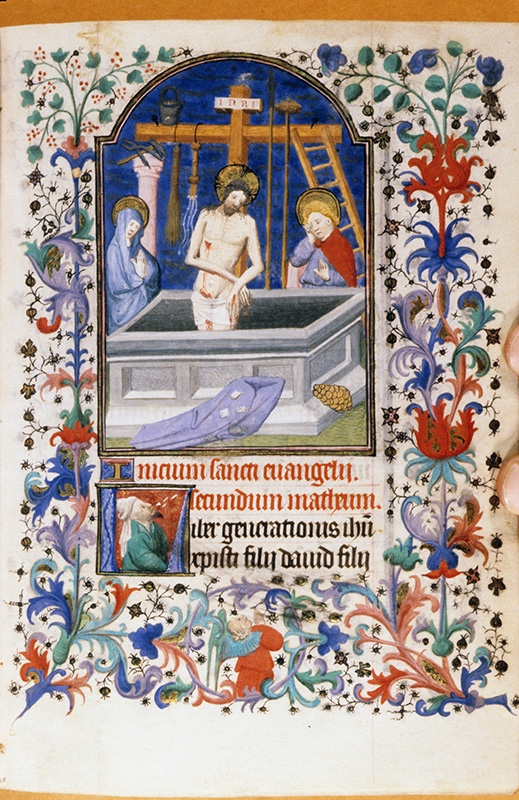 INRI
Inicium sancti euangelij.
secundum matheum.
Liber generationis ihū
xpisti filij dauid filij